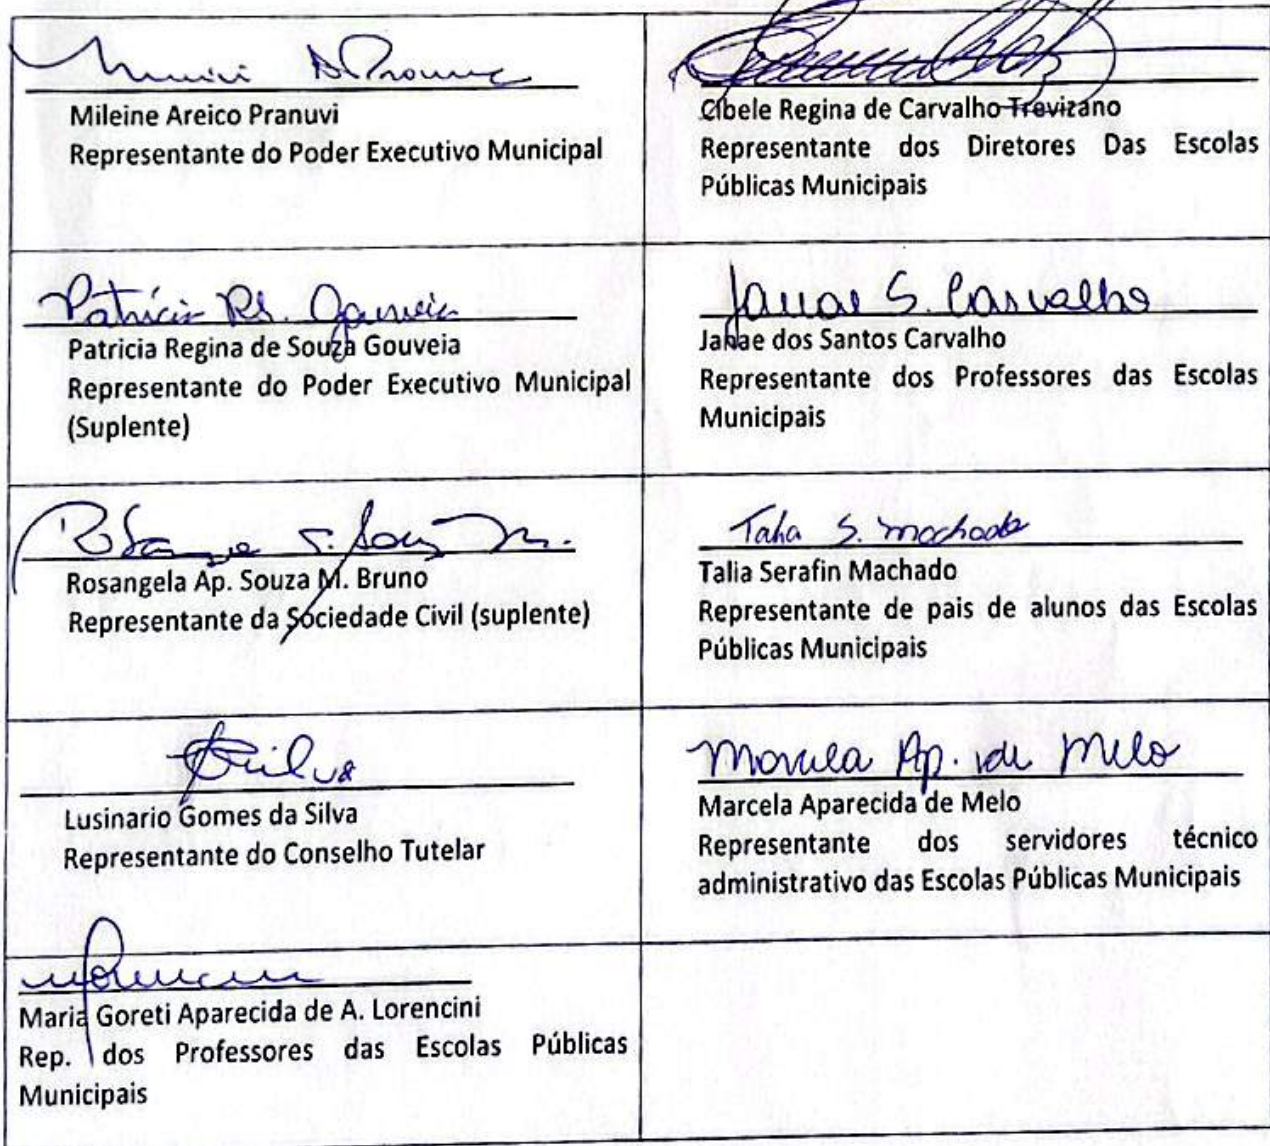 Mileine Areico Pranuvi
Representante do Poder Executivo Municipal
Cibele Regina de Carvalho Trevizano
Representante dos Diretores Das Escolas
Públicas Municipais
Patrícia Rs. Gouveia
Patricia Regina de Souza Gouveia
Representante do Poder Executivo Municipal
(Suplente)
Janae S. Carvalho
Janae dos Santos Carvalho
Representante dos Professores das Escolas
Municipais
Rosangela Ap. Souza M. Bruno
Representante da Sociedade Civil (suplente)
Talia S. Machado
Talia Serafin Machado
Representante de pais de alunos das Escolas
Públicas Municipais
Silva
Lusinario Gomes da Silva
Representante do Conselho Tutelar
Marcela Ap. de Melo
Marcela Aparecida de Melo
Representante dos servidores técnico
administrativo das Escolas Públicas Municipais
Maria Goreti Aparecida de A. Lorencini
Rep. dos Professores das Escolas Públicas
Municipais